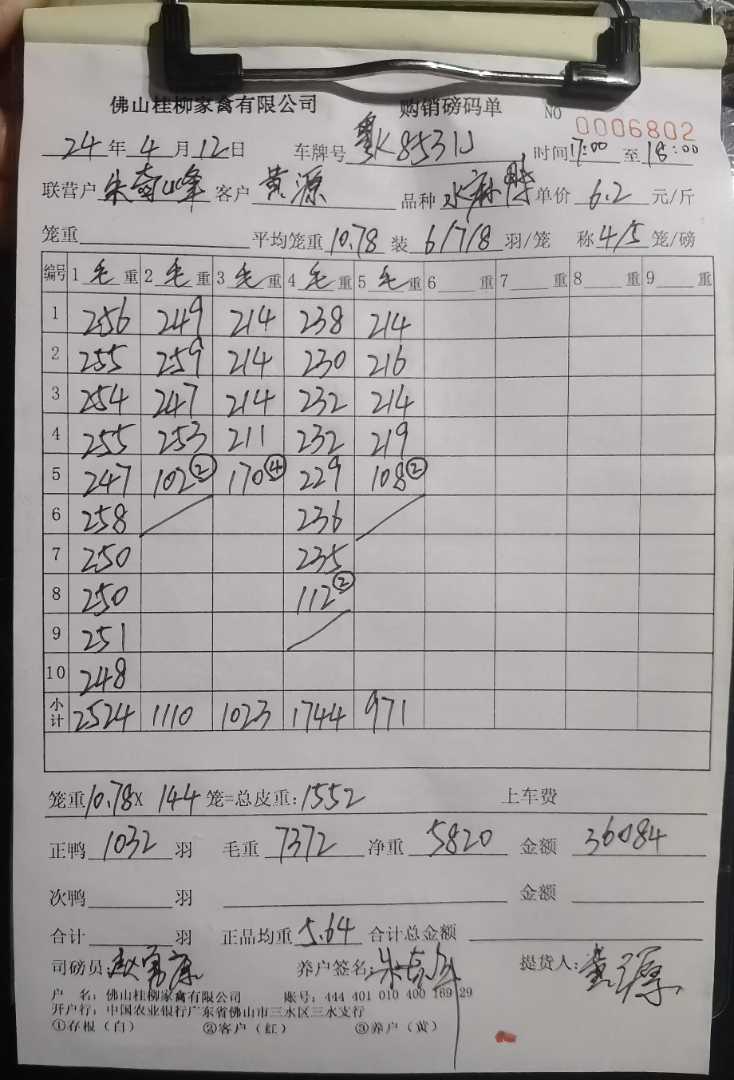 佛山桂柳家禽有限公司 购销磅码单 NO 0006802
24年4月12日 车牌号 粤K853 时间17:00至18:00
联营户 朱奇峰 客户 黄源 品种 水麻鸭 单价6.2元/斤
笼重 平均笼重10.78 装6/7/8羽/笼 称4/5笼/磅
编号 1毛重 2毛重 3毛重 4毛重 5毛重 6 重 7 重 8 重 9 重
1 256 249 214 238 214
2 255 259 214 230 216
3 254 247 214 232 214
4 255 253 211 232 219
5 247 102② 170④ 229 108②
6 258 236
7 250 235
8 250 112②
9 251
10 248
小计 2524 1110 1023 1744 971
笼重10.78×144笼=总皮重:1552 上车费
正鸭1032羽 毛重7372 净重5820 金额36084
次鸭 羽 金额
合计 羽 正品均重5.64 合计总金额
司磅员: 养户签名: 提货人:黄源
户 名:佛山桂柳家禽有限公司 账号:444 401 010 400 169 29
开户行:中国农业银行广东省佛山市三水区三水支行
①存根(白) ②客户(红) ③养户(黄)